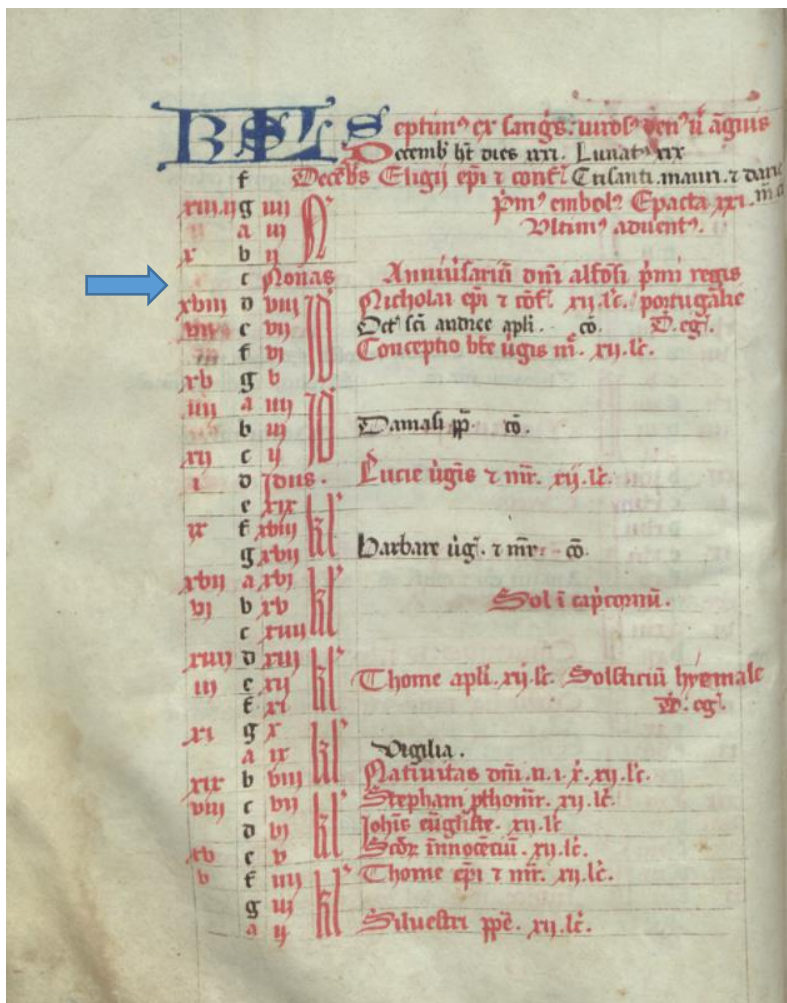 KL Septimꝰ ex sangꝭ. uirosꝰ denꝰ ut āguis
Decemb ht dies xxxi. Lunatꝰ xxx
f Decēbs Eligij epi ⁊ conf. Crisanti. mauri. ⁊ darie
xiii. ij g iiij N pͥmꝰ embolꝭ Epacta xxi. m̄
a iij Vltimꝰ aduentꝰ.
x b ij
c Nonas Anniuͥsariū dnī alfōsi pͥmi regis
xviii d viij Id Nicholai epi ⁊ cōf. xij. lc̄. portugalie
vij e vij Oct scī andree apli. cō. D. egͥ.
f vj Conceptio bt̄e uͥgis m̄. xij. lc̄.
xv g v
iiij a iiij Id
b iij Damasi pp̄. cō.
xij c ij
i d Idus. Lucie uͥgis ⁊ mr̄. xij. lc̄.
e xix kl
ix f xviij
g xvij Barbare uͥg. ⁊ mr̄. cō.
xvij a xvj kl
vi b xv Sol ī capͥcornū.
c xiiij
xiiij d xiij kl
iij e xij Thome apli. xij. lc̄. Solsticiū hyemale
f xi D. egͥ.
xi g x kl
a ix Vigilia.
xix b viij Natiuitas dnī. n. i. x̄. xij. lc̄.
viij c vij kl Stephani pthomr̄. xij. lc̄.
d vj Johīs eūgliste. xij. lc̄
xv e v Scōꝝ innocēciū. xij. lc̄.
v f iiij kl Thome epi ⁊ mr̄. xij. lc̄.
g iij
a ij Siluestri ppē. xij. lc̄.